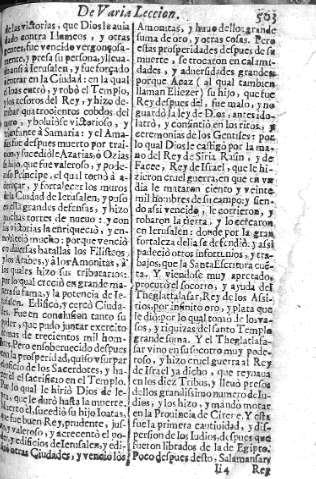 De Varia Leccion. 503
das victorias, que Dios le auia
dado contra Elanceos, y otras
gentes, fue vencido vergonçosa-
mente, y presa su persona, lleua-
ron a Ierusalen, y fue forçado
entrar en la Ciudad: en la qual
entrò, y robò el Templo,
y los tesoros del Rey, y hizo de-
quatrocientos cobdos del
muro, y boluiose victorioso, y
triunfante à Samaria: y el Ama-
sias fue despues muerto por trai-
cion, y sucediòle Azarias, ò Ozias
hijo, que fue valeroso, y pode-
roso Principe, el qual tornò à
, y fortalecer los muros
la Ciudad de Ierusalen, y puso
en ella grandes defensas, y hizo
muchas torres de nueuo, y con
las vitorias la enriqueciò, y en-
nobleciò mucho: porque venciò
en diuersas batallas los Filisteos
y los Arabes, y à los Amonitas, à
los quales hizo sus tributarios:
por lo qual creciò en grande ma-
nera su fama, y la potencia de Ie-
rusalen. Edificò, y cercò Ciuda-
des. Fue en conclusion tanto su
poder, que pudo juntar exercito
de mas de trecientos mil hom-
bres. Pero ensoberuecido despues
con la prosperidad, quiso vsurpar
el oficio de los Sacerdotes, y ha-
zer el sacrificio en el Templo.
Por lo qual le hiriò Dios de le-
pra, que le durò hasta la muerte.
Muerto èl, sucediò su hijo Ioatas,
que fue buen Rey, prudente, jus-
to, y valeroso, y acrecentò el po-
der, y edificios de Ierusalen, y edi-
ficò otras Ciudades, y venciò los
Amonitas, y huuo dellos grande
suma de oro, y otras cosas. Pero
estas prosperidades despues de su
muerte, se trocaron en calami-
dades, y aduersidades grandes:
porque Acaz (al qual tambien
llaman Eliezer) su hijo, que fue
Rey despues del, fue malo, y no
guardò la ley de Dios, antes ido-
latrò, y consintiò en los ritos, y
ceremonias de los Gentiles: por
lo qual Dios le castigò por la ma-
no del Rey de Siria Rasin, y de
Facee, Rey de Israel, que le hi-
zieron cruel guerra, en que en vn
dia le mataron ciento y veinte
mil hombres de su campo; y sien-
do assi vencido, le corrieron, y
robaron la tierra, y lo cercaron
en Ierusalen: donde por la gran
fortaleza della se defendiò, y assi
padeciò otros infortunios, y tra-
bajos, que la Santa Escritura cuẽ-
ta. Y viendose muy apretado,
procurò el socorro, y ayuda del
Theglatfalasar, Rey de los Asi-
rios, por infinito oro, y plata que
le diò, por lo qual tomò de los va-
sos, y riquezas del santo Templo
grande suma. Y el Theglatfala-
sar vino en su socorro muy pode-
roso, y hizo cruel guerra al Rey
de Israel ya dicho, que reynaua
en los diez Tribus, y lleuò presos
dellos grandissimo numero de Iu-
dios, y los hizo, y mandò morar
en la Prouincia de Cirere. Y esta
fue la primera cautiuidad, y dis-
persion de los Iudios, despues que
fueron librados de la de Egipto.
Poco despues desto, Salamansar,
Ii 4 Rey